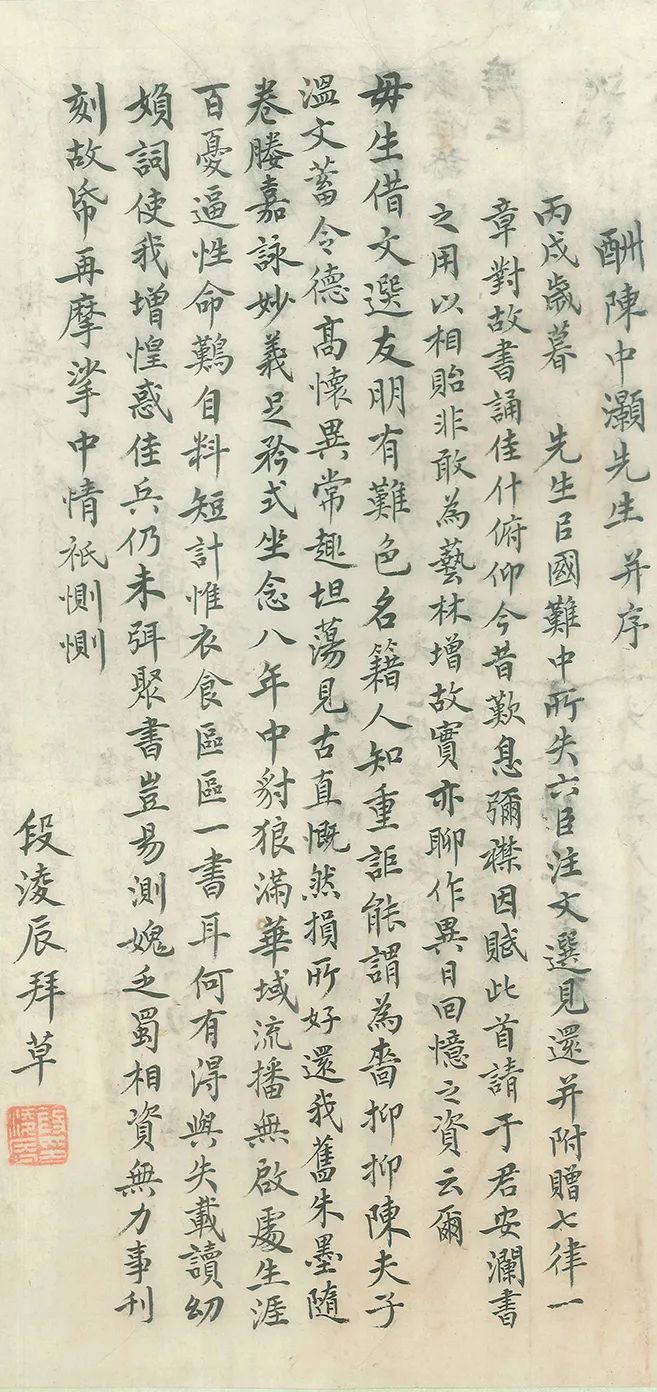 酬陳中灝先生并序
丙戌歲暮　先生㠯國難中所失六臣注文選見還并附贈七律一
章對故書誦佳什俯仰今昔歎息彌襟因賦此首請于君安瀾書
之用以相貽非敢為藝林增故實亦聊作異日回憶之資云爾
毋生借文選友朋有難色名籍人知重詎能謂為嗇抑抑陳夫子
溫文蓄令德高懷異常趣坦蕩見古直慨然損所好還我舊朱墨隨
卷媵嘉詠妙義足矜式坐念八年中豺狼滿華域流播無啟處生涯
百憂逼性命鷄自料短計惟衣食區區一書耳何有得與失載讀幼
嬪詞使我增惶惑佳兵仍未弭聚書豈易測媿乏蜀相資無力事刊
刻故帋再摩挲中情祇惻惻
段淩辰拜草